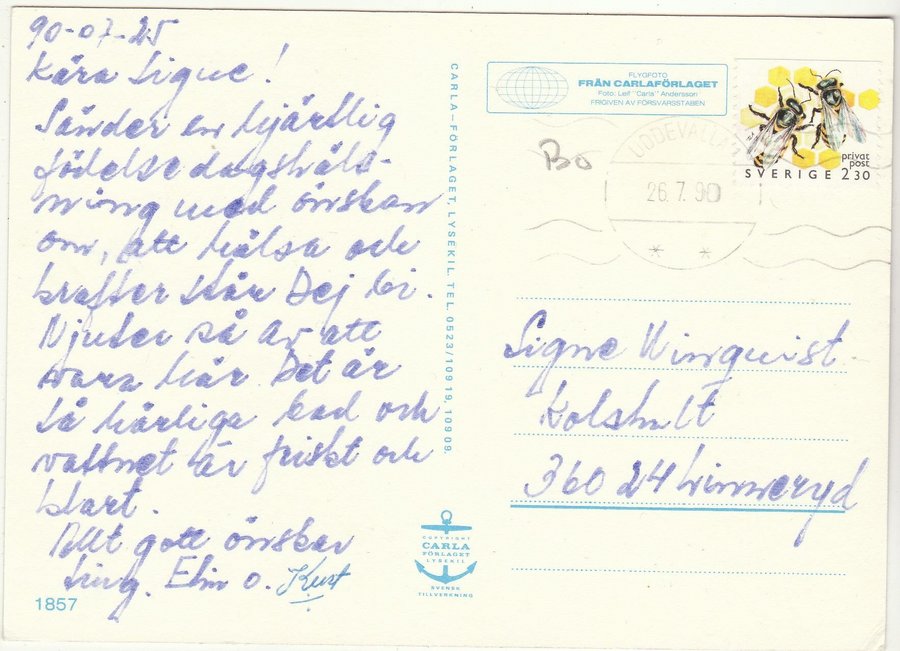 90-07-25
Kära Signe!
Sänder en hjärtlig
födelsedagshäls-
ning med önskan
om, att hälsa och
krafter står Dej bi.
Njuter så av att
vara här. Det är
så härliga bad och
vattnet är friskt och
klart.
Allt gott önskar
Ing. Elin o. Kurt
1857
CARLA-FÖRLAGET, LYSEKIL. TEL. 0523/10919, 10909.
COPYRIGHT
CARLA
FÖRLAGET
LYSEKIL
SVENSK
TILLVERKNING
FLYGFOTO
FRÅN CARLAFÖRLAGET
Foto: Leif "Carla" Andersson
FRIGIVEN AV FÖRSVARSSTABEN
Bo
UDDEVALLA
26.7.90
privat
post
SVERIGE 2.30
Signe Winquist
Kolshult
360 24 Linneryd